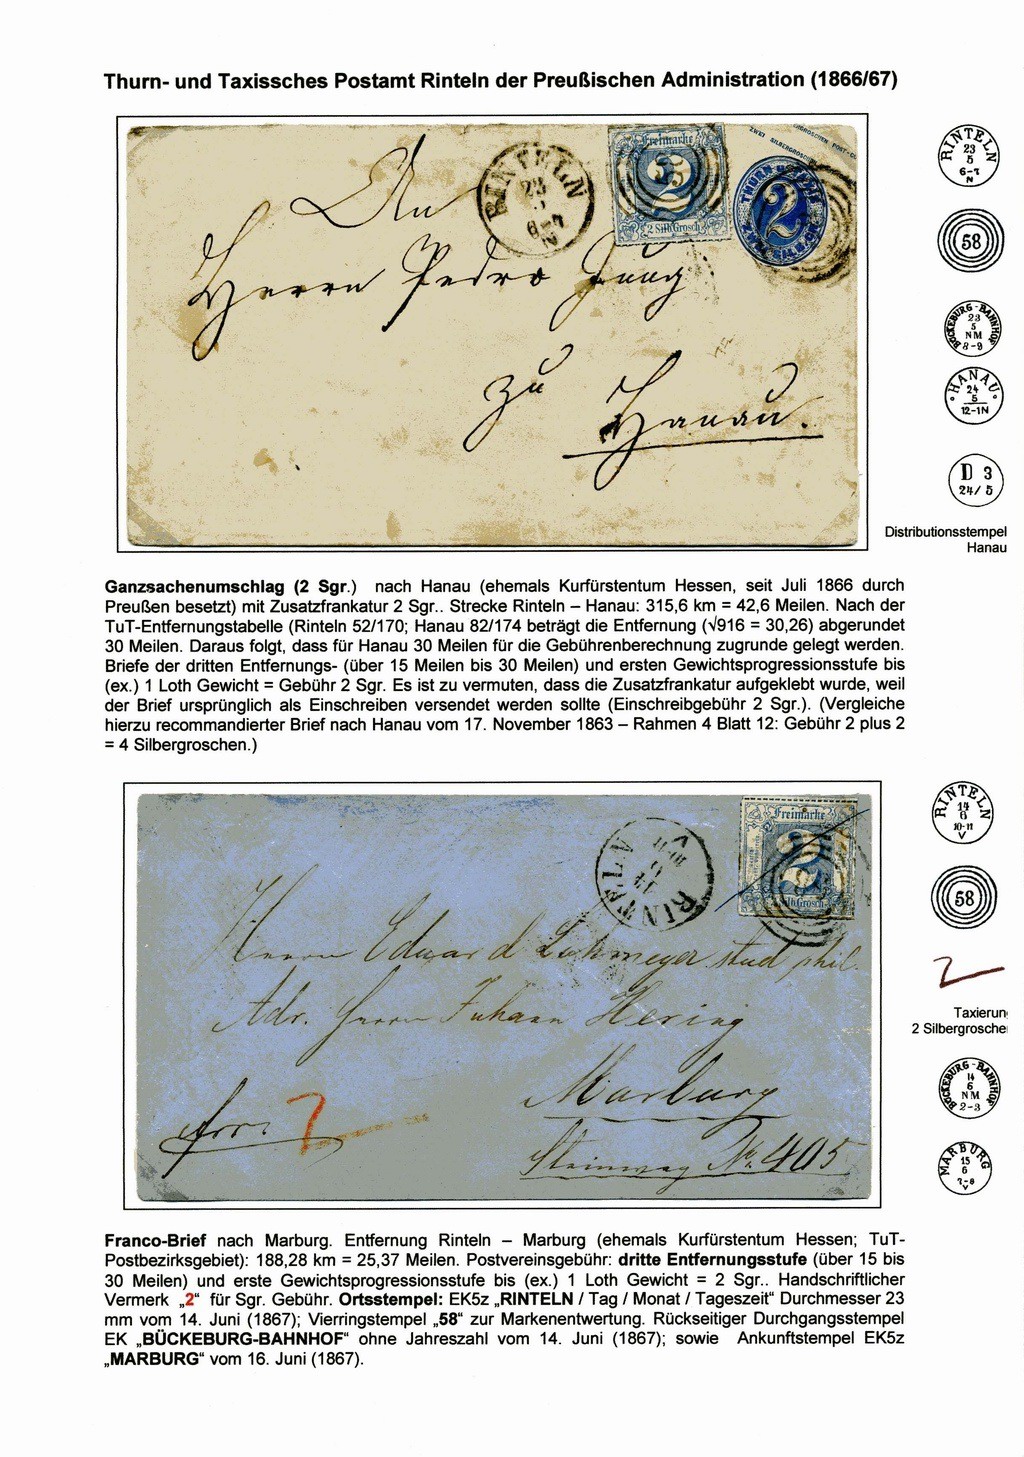 Thurn- und Taxissches Postamt Rinteln der Preußischen Administration (1866/67)
RINTELN
23
5
6-7
N
Freimarke
2
2 Silb.Grosch.
ZWEI SILBERGROSCHEN POST-
THURN U. TAXIS
2
An
Herrn Pedro Jung
zu Hanau.
RINTELN
23
5
6-7
N
58
BÜCKEBURG-BAHNHOF
23
5
NM
8-9
HANAU
24
5
12-1N
D 3
24/5
Distributionsstempel
Hanau
Ganzsachenumschlag (2 Sgr.) nach Hanau (ehemals Kurfürstentum Hessen, seit Juli 1866 durch
Preußen besetzt) mit Zusatzfrankatur 2 Sgr.. Strecke Rinteln – Hanau: 315,6 km = 42,6 Meilen. Nach der
TuT-Entfernungstabelle (Rinteln 52/170; Hanau 82/174 beträgt die Entfernung (√916 = 30,26) abgerundet
30 Meilen. Daraus folgt, dass für Hanau 30 Meilen für die Gebührenberechnung zugrunde gelegt werden.
Briefe der dritten Entfernungs- (über 15 Meilen bis 30 Meilen) und ersten Gewichtsprogressionsstufe bis
(ex.) 1 Loth Gewicht = Gebühr 2 Sgr. Es ist zu vermuten, dass die Zusatzfrankatur aufgeklebt wurde, weil
der Brief ursprünglich als Einschreiben versendet werden sollte (Einschreibgebühr 2 Sgr.). (Vergleiche
hierzu recommandierter Brief nach Hanau vom 17. November 1863 – Rahmen 4 Blatt 12: Gebühr 2 plus 2
= 4 Silbergroschen.)
RINTELN
14
6
10-11
V
Freimarke
2
2 Silb.Grosch.
58
Herrn Eduard Lohmeyer stud phil.
Adr. Herrn Johann Hering
Marburg
frco. 2
Steinweg No. 405
RINTELN
14
6
10-11
V
58
2
Taxierun
2 Silbergrosche
BÜCKEBURG-BAHNHOF
14
6
NM
2-3
MARBURG
15
6
7-8
V
Franco-Brief nach Marburg. Entfernung Rinteln – Marburg (ehemals Kurfürstentum Hessen; TuT-
Postbezirksgebiet): 188,28 km = 25,37 Meilen. Postvereinsgebühr: dritte Entfernungsstufe (über 15 bis
30 Meilen) und erste Gewichtsprogressionsstufe bis (ex.) 1 Loth Gewicht = 2 Sgr.. Handschriftlicher
Vermerk „2“ für Sgr. Gebühr. Ortsstempel: EK5z „RINTELN / Tag / Monat / Tageszeit“ Durchmesser 23
mm vom 14. Juni (1867); Vierringstempel „58“ zur Markenentwertung. Rückseitiger Durchgangsstempel
EK „BÜCKEBURG-BAHNHOF“ ohne Jahreszahl vom 14. Juni (1867); sowie Ankunftstempel EK5z
„MARBURG“ vom 16. Juni (1867).